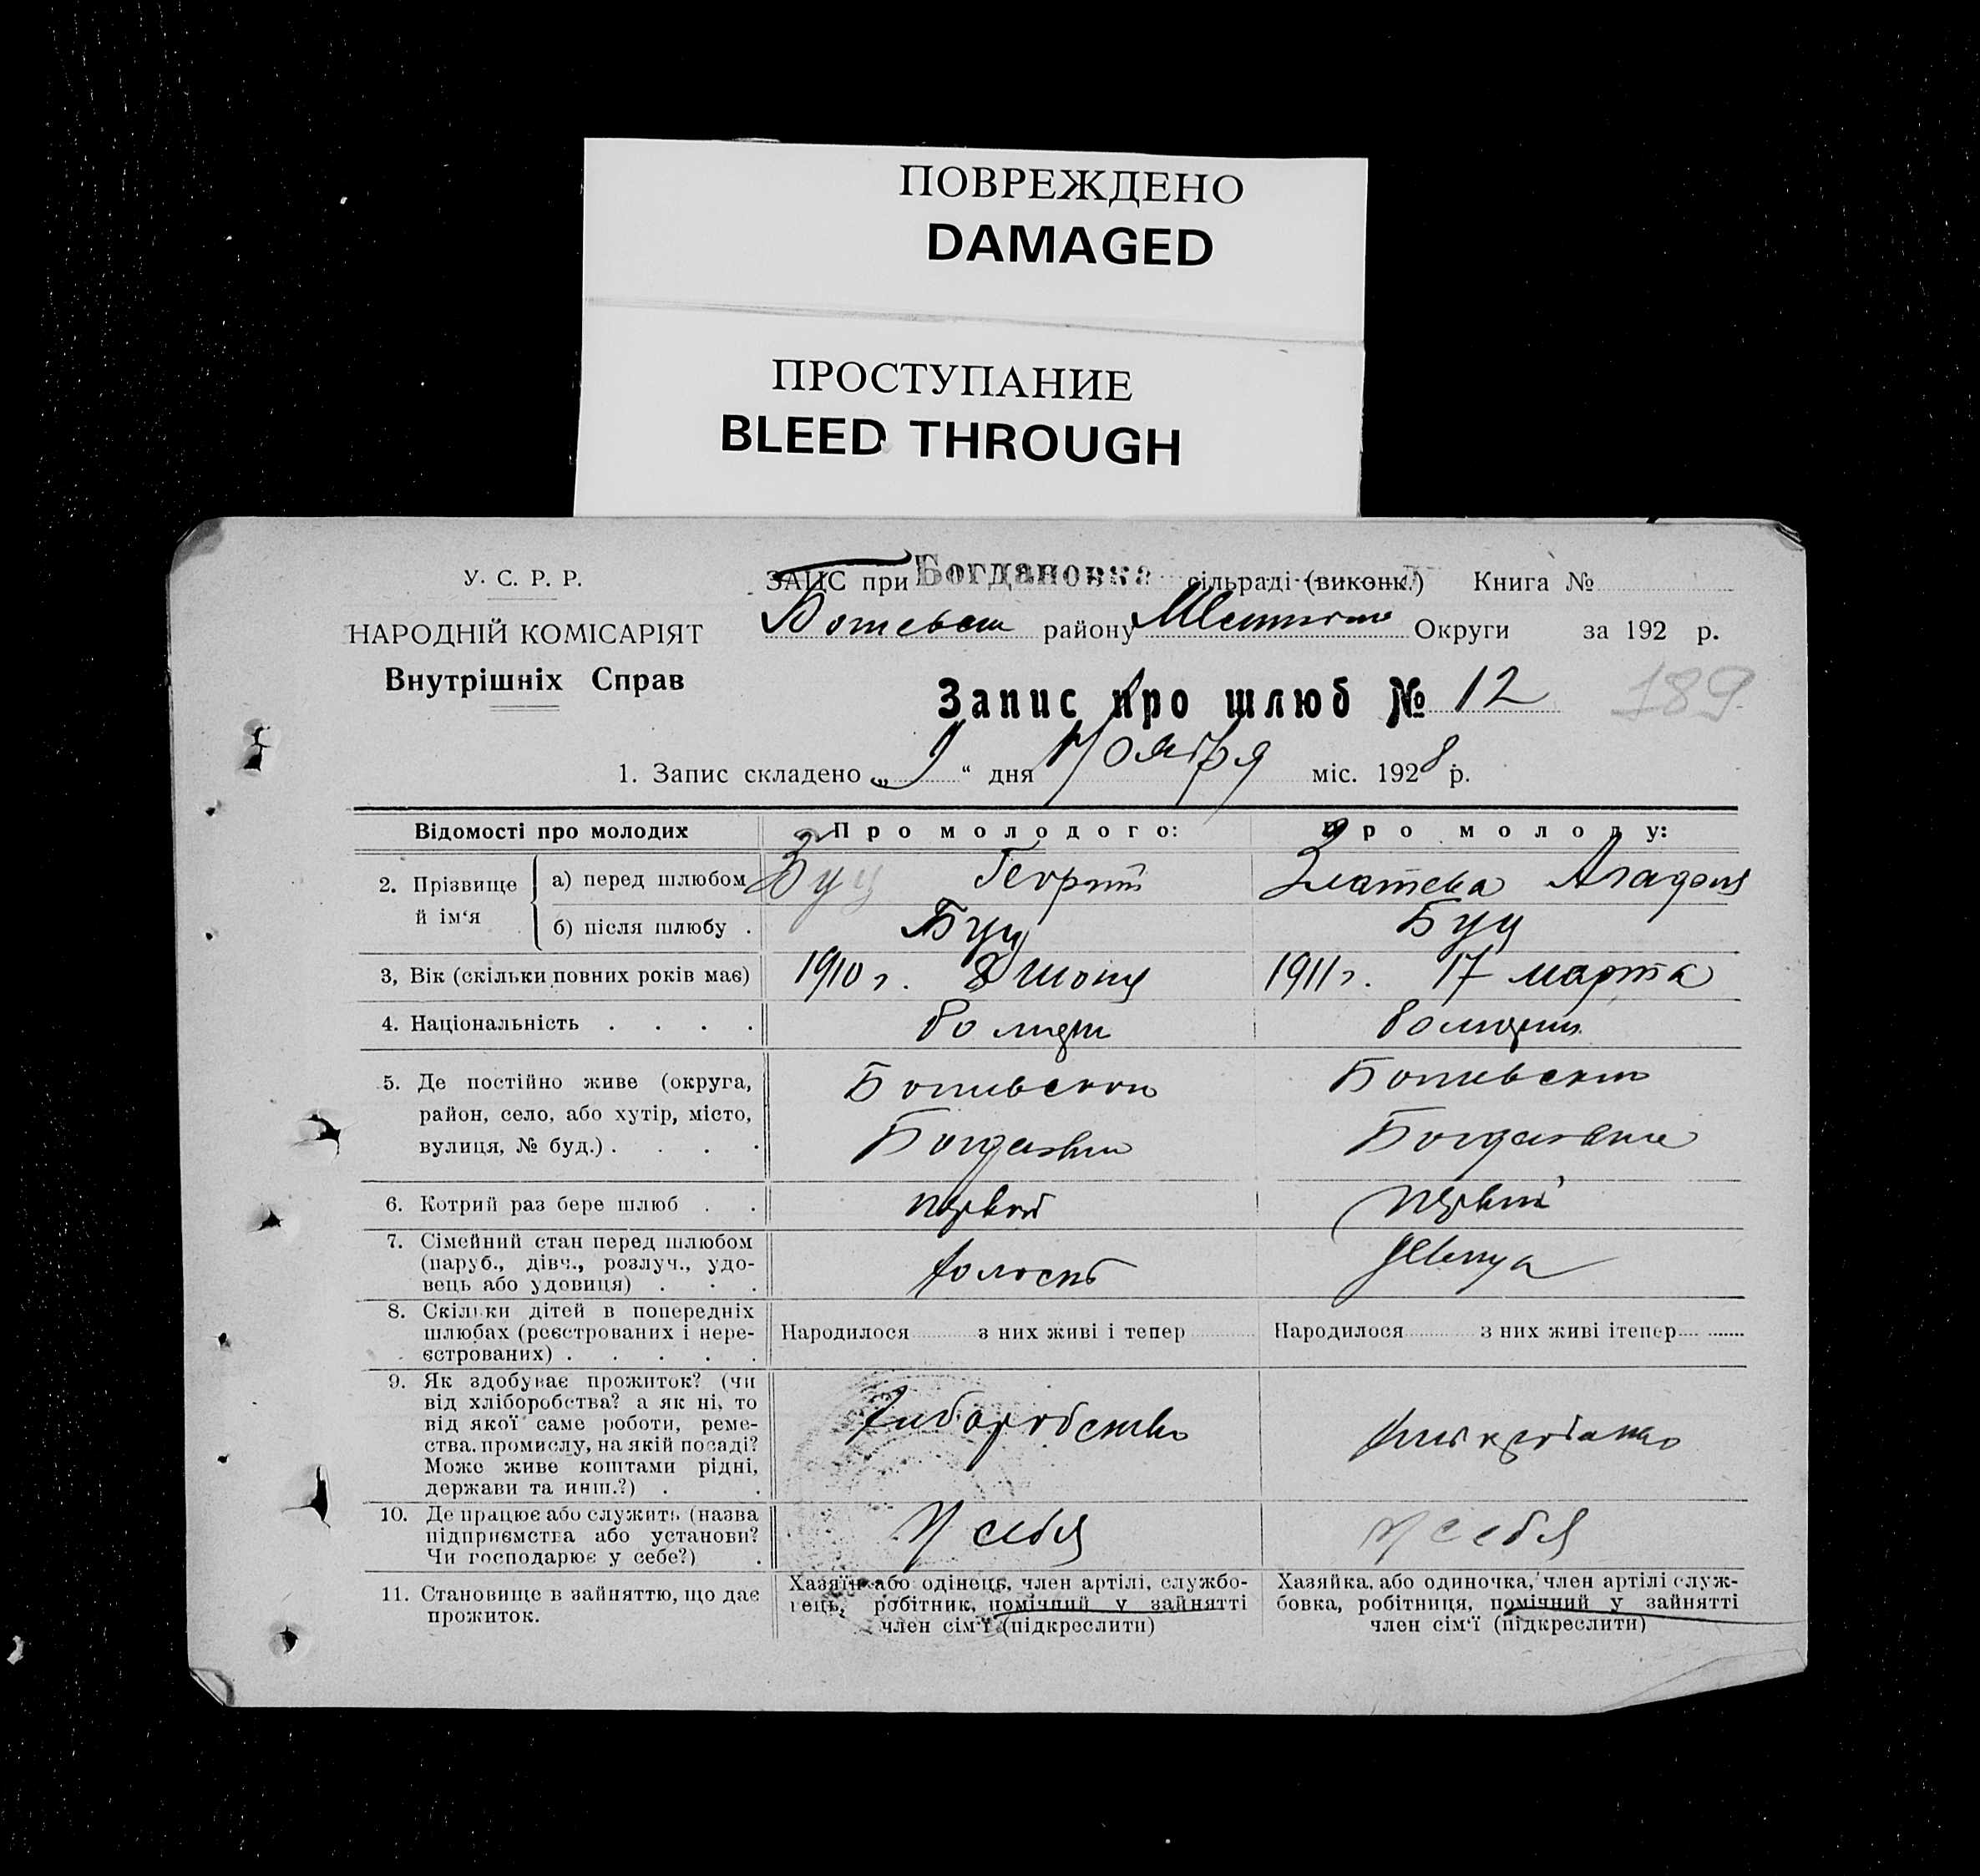 ПОВРЕЖДЕНО
DAMAGED
ПРОСТУПАНИЕ
BLEED THROUGH
У. С. Р. Р.
НАРОДНІЙ КОМІСАРІЯТ
Внутрішніх Справ
ЗАЦС при Богдановка сільраді (виконк.) Книга №
району Округи за 192 р.
Запис про шлюб № 12
189
1. Запис складено „ 9 “ дня Ноября міс. 1928 р.
Відомості про молодих
Про молодого:
Про молоду:
2. Прізвище й ім‘я
а) перед шлюбом
Буц Георгий
Златева Агафия
б) після шлюбу .
Буц
Буц
3, Вік (скільки повних років має)
1910 г. 8 июня
1911 г. 17 марта
4. Національність . . . .
5. Де постійно живе (округа,
район, село, або хутір, місто,
вулиця, № буд.) . . . .
6. Котрий раз бере шлюб . .
первый
первый
7. Сімейний стан перед шлюбом
(паруб., дівч., розлуч., удо-
вець або удовиця) . . .
холост
девица
8. Скільки дітей в попередніх
шлюбах (реєстрованих і нере-
єстрованих) . . . . .
Народилося з них живі і тепер
Народилося з них живі ітепер
9. Як здобуває прожиток? (чи
від хліборобства? а як ні, то
від якої саме роботи, реме-
ства, промислу, на якій посаді?
Може живе коштами рідні,
держави та инш.?) . .
10. Де працює або служить (назва
підприємства або установи?
Чи господарює у себе?) .
У себя
У себя
11. Становище в зайняттю, що дає
прожиток.
Хазяїн або одінець, член артілі, службо-
вець, робітник, помічний у зайнятті
член сім‘ї (підкреслити)
Хазяйка, або одиночка, член артілі служ-
бовка, робітниця, помічний у зайнятті
член сім‘ї (підкреслити)